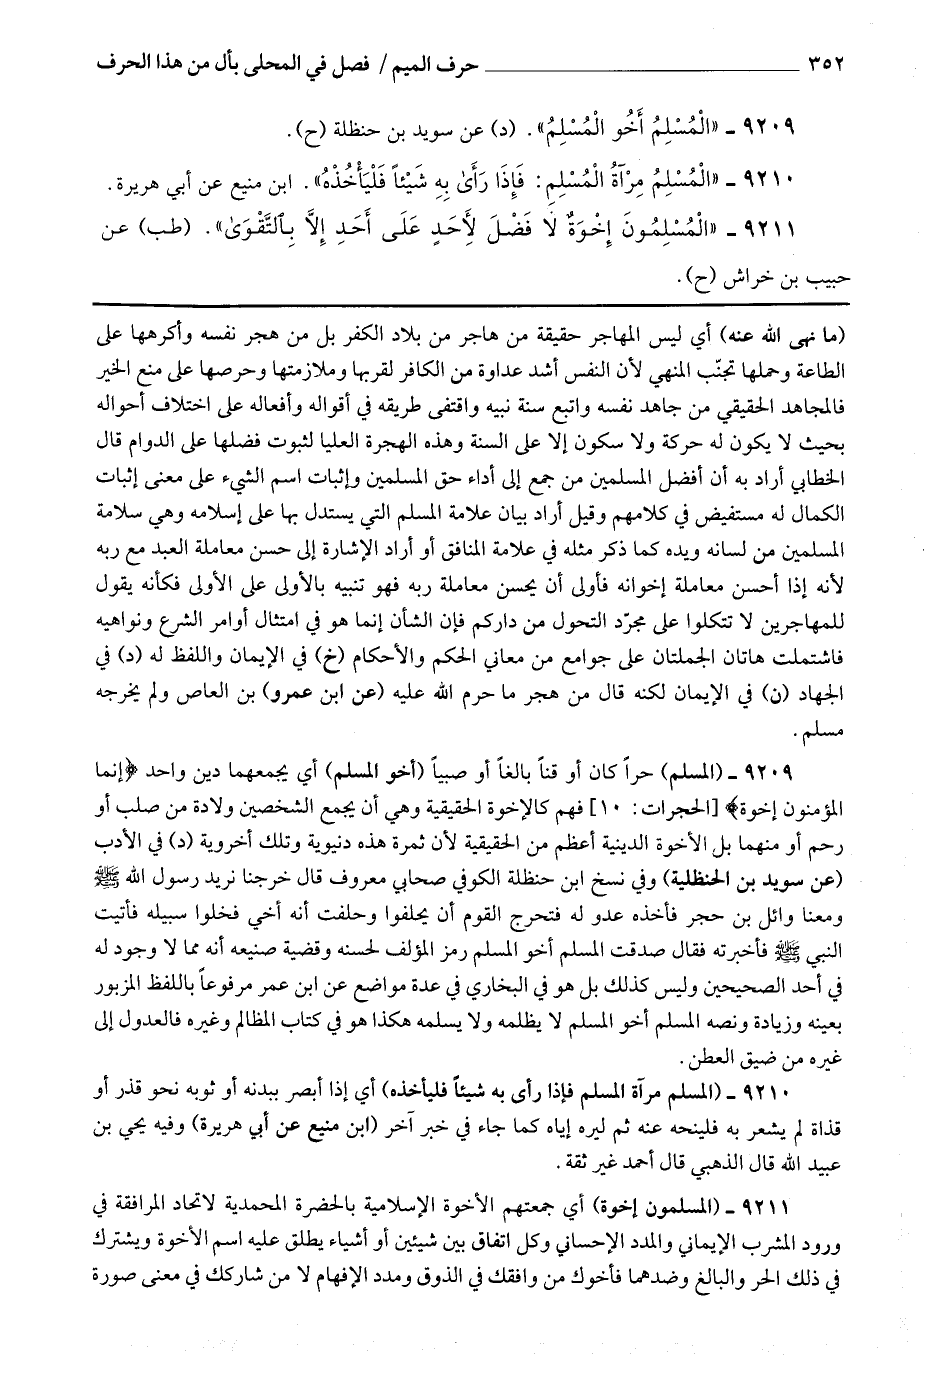 ٣٥٢ ــــــــــ حرف الميم / فصل في المحلى بأل من هذا الحرف
٩٢٠٩ ـ «الْمُسْلِمُ أَخُو الْمُسْلِمُ». (د) عن سويد بن حنظلة (ح).
٩٢١٠ ـ «الْمُسْلِمُ مِرْآةُ الْمُسْلِمِ: فَإِذَا رَأَىٰ بِهِ شَيْئاً فَلْيَأْخُذْهُ». ابن منيع عن أبي هريرة.
٩٢١١ ـ «الْمُسْلِمُونَ إِخْوَةٌ لَا فَضْلَ لِأَحَدٍ عَلَى أَحَدِ إِلاَّ بِٱلتَّقْوَىٰ». (طب) عن
حبيب بن خراش (ح).
(ما نهى الله عنه) أي ليس المهاجر حقيقة من هاجر من بلاد الكفر بل من هجر نفسه وأكرهها على
الطاعة وحملها تجنّب المنهي لأن النفس أشد عداوة من الكافر لقربها وملازمتها وحرصها على منع الخير
فالمجاهد الحقيقي من جاهد نفسه واتبع سنة نبيه واقتفى طريقه في أقواله وأفعاله على اختلاف أحواله
بحيث لا يكون له حركة ولا سكون إلا على السنة وهذه الهجرة العليا لثبوت فضلها على الدوام قال
الخطابي أراد به أن أفضل المسلمين من جمع إلى أداء حق المسلمين وإثبات اسم الشيء على معنى إثبات
الكمال له مستفيض في كلامهم وقيل أراد بيان علامة المسلم التي يستدل بها على إسلامه وهي سلامة
المسلمين من لسانه ويده كما ذكر مثله في علامة المنافق أو أراد الإشارة إلى حسن معاملة العبد مع ربه
لأنه إذا أحسن معاملة إخوانه فأولى أن يحسن معاملة ربه فهو تنبيه بالأولى على الأولى فكأنه يقول
للمهاجرين لا تتكلوا على مجرّد التحول من داركم فإن الشأن إنما هو في امتثال أوامر الشرع ونواهيه
فاشتملت هاتان الجملتان على جوامع من معاني الحكم والأحكام (خ) في الإيمان واللفظ له (د) في
الجهاد (ن) في الإيمان لكنه قال من هجر ما حرم الله عليه (عن ابن عمرو) بن العاص ولم يخرجه
مسلم.
٩٢٠٩ ـ (المسلم) حراً كان أو قناً بالغاً أو صبياً (أخو المسلم) أي يجمعهما دين واحد ﴿إنما
المؤمنون إخوة﴾ [الحجرات: ١٠] فهم كالإخوة الحقيقية وهي أن يجمع الشخصين ولادة من صلب أو
رحم أو منهما بل الأخوة الدينية أعظم من الحقيقية لأن ثمرة هذه دنيوية وتلك أخروية (د) في الأدب
(عن سويد بن الحنظلية) وفي نسخ ابن حنظلة الكوفي صحابي معروف قال خرجنا نريد رسول الله ﷺ
ومعنا وائل بن حجر فأخذه عدو له فتحرج القوم أن يحلفوا وحلفت أنه أخي فخلوا سبيله فأتيت
النبي ﷺ فأخبرته فقال صدقت المسلم أخو المسلم رمز المؤلف لحسنه وقضية صنيعه أنه مما لا وجود له
في أحد الصحيحين وليس كذلك بل هو في البخاري في عدة مواضع عن ابن عمر مرفوعاً باللفظ المزبور
بعينه وزيادة ونصه المسلم أخو المسلم لا يظلمه ولا يسلمه هكذا هو في كتاب المظالم وغيره فالعدول إلى
غيره من ضيق العطن.
٩٢١٠ ـ (المسلم مرآة المسلم فإذا رأى به شيئاً فليأخذه) أي إذا أبصر ببدنه أو ثوبه نحو قذر أو
قذاة لم يشعر به فلينحه عنه ثم ليره إياه كما جاء في خبر آخر (ابن منيع عن أبي هريرة) وفيه يحي بن
عبيد الله قال الذهبي قال أحمد غير ثقة.
٩٢١١ ـ (المسلمون إخوة) أي جمعتهم الأخوة الإسلامية بالحضرة المحمدية لاتحاد المرافقة في
ورود المشرب الإيماني والمدد الإحساني وكل اتفاق بين شيئين أو أشياء يطلق عليه اسم الأخوة ويشترك
في ذلك الحر والبالغ وضدهما فأخوك من وافقك في الذوق ومدد الإفهام لا من شاركك في معنى صورة